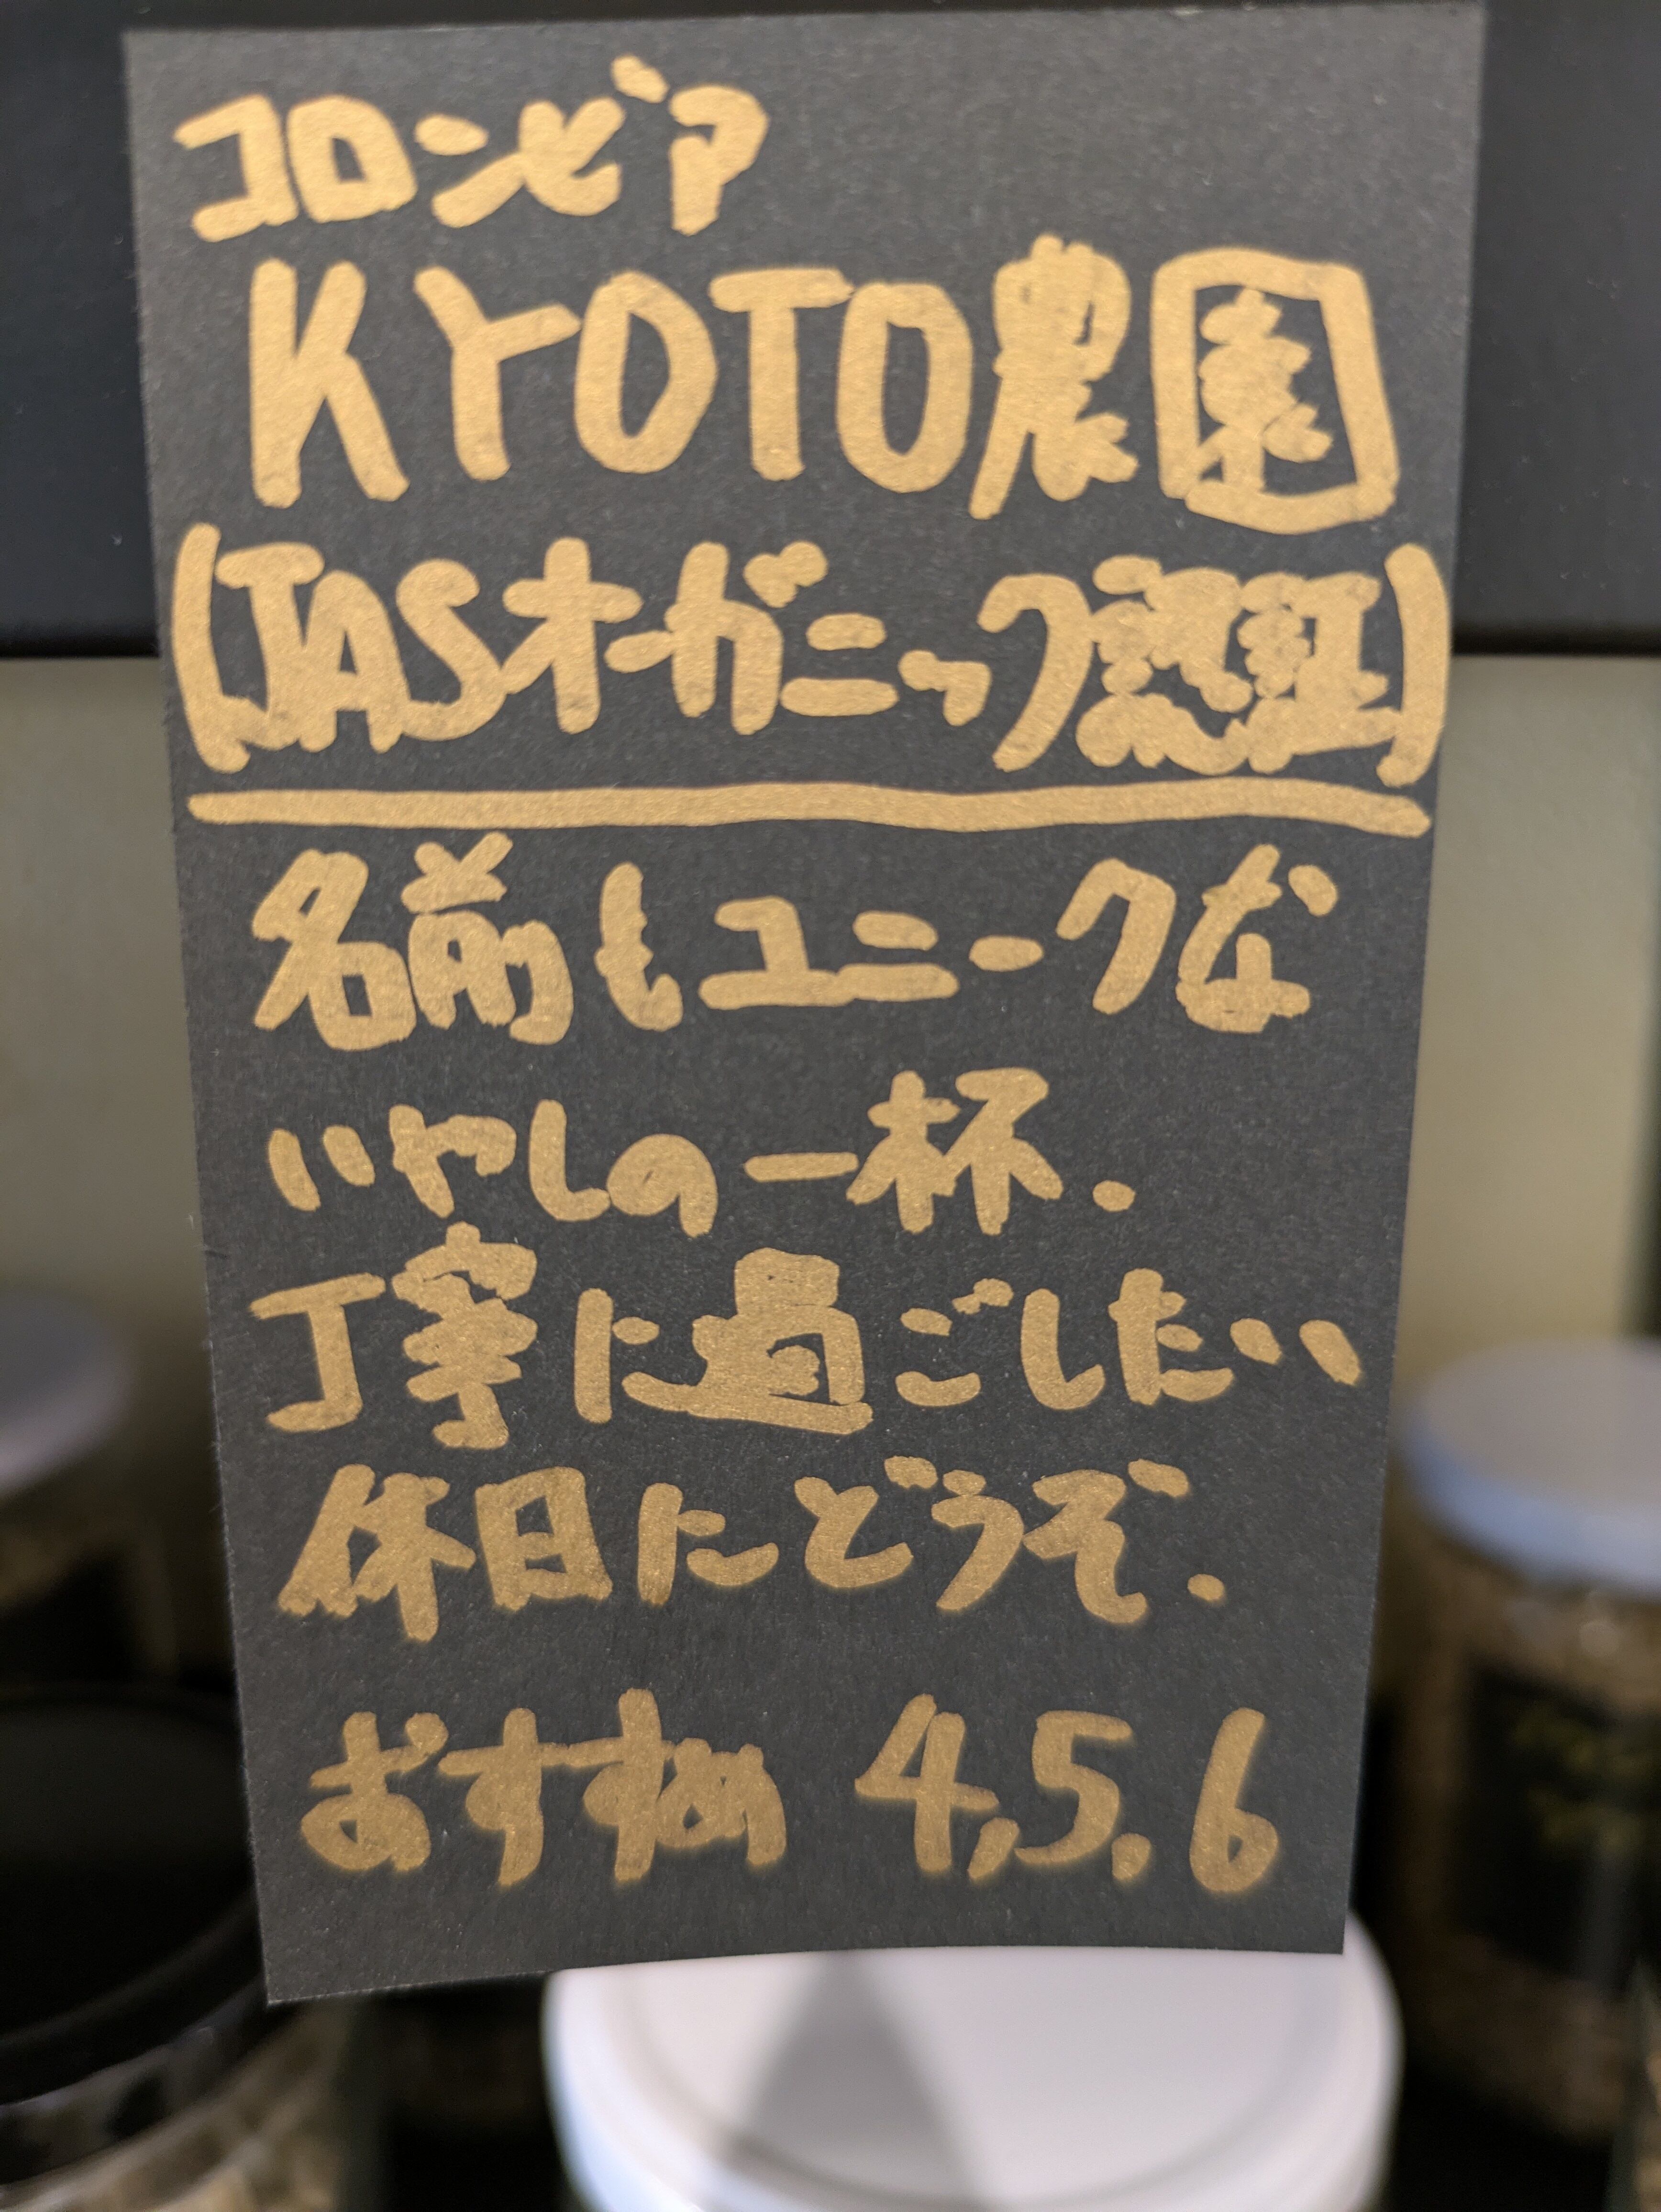 コロンビア
KYOTO農園
(JASオーガニック認証)
名前もユニークな
いやしの一杯.
丁寧に過ごしたい
休日にどうぞ.
おすすめ 4,5.6